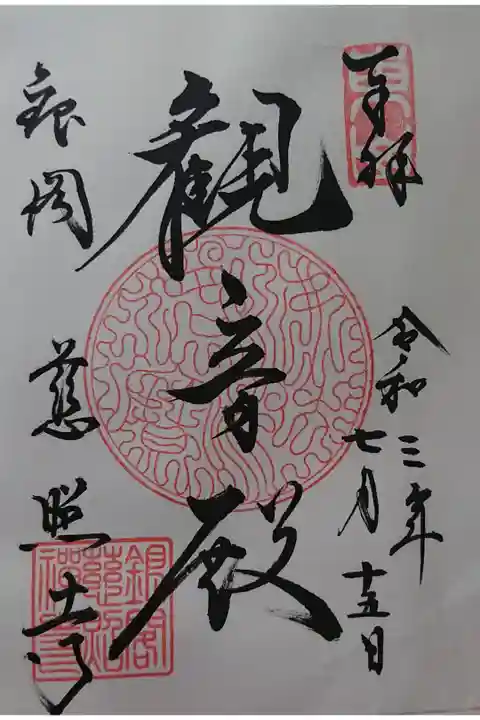 奉拝
令和三年
七月十五日
観音殿
銀閣
慈照寺
銀閣
慈照
禅寺